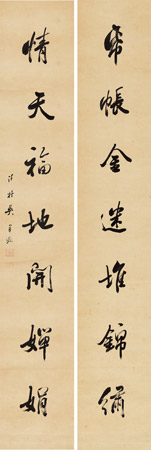 帋帳金迷堆錦繡
情天福地開嬋娟